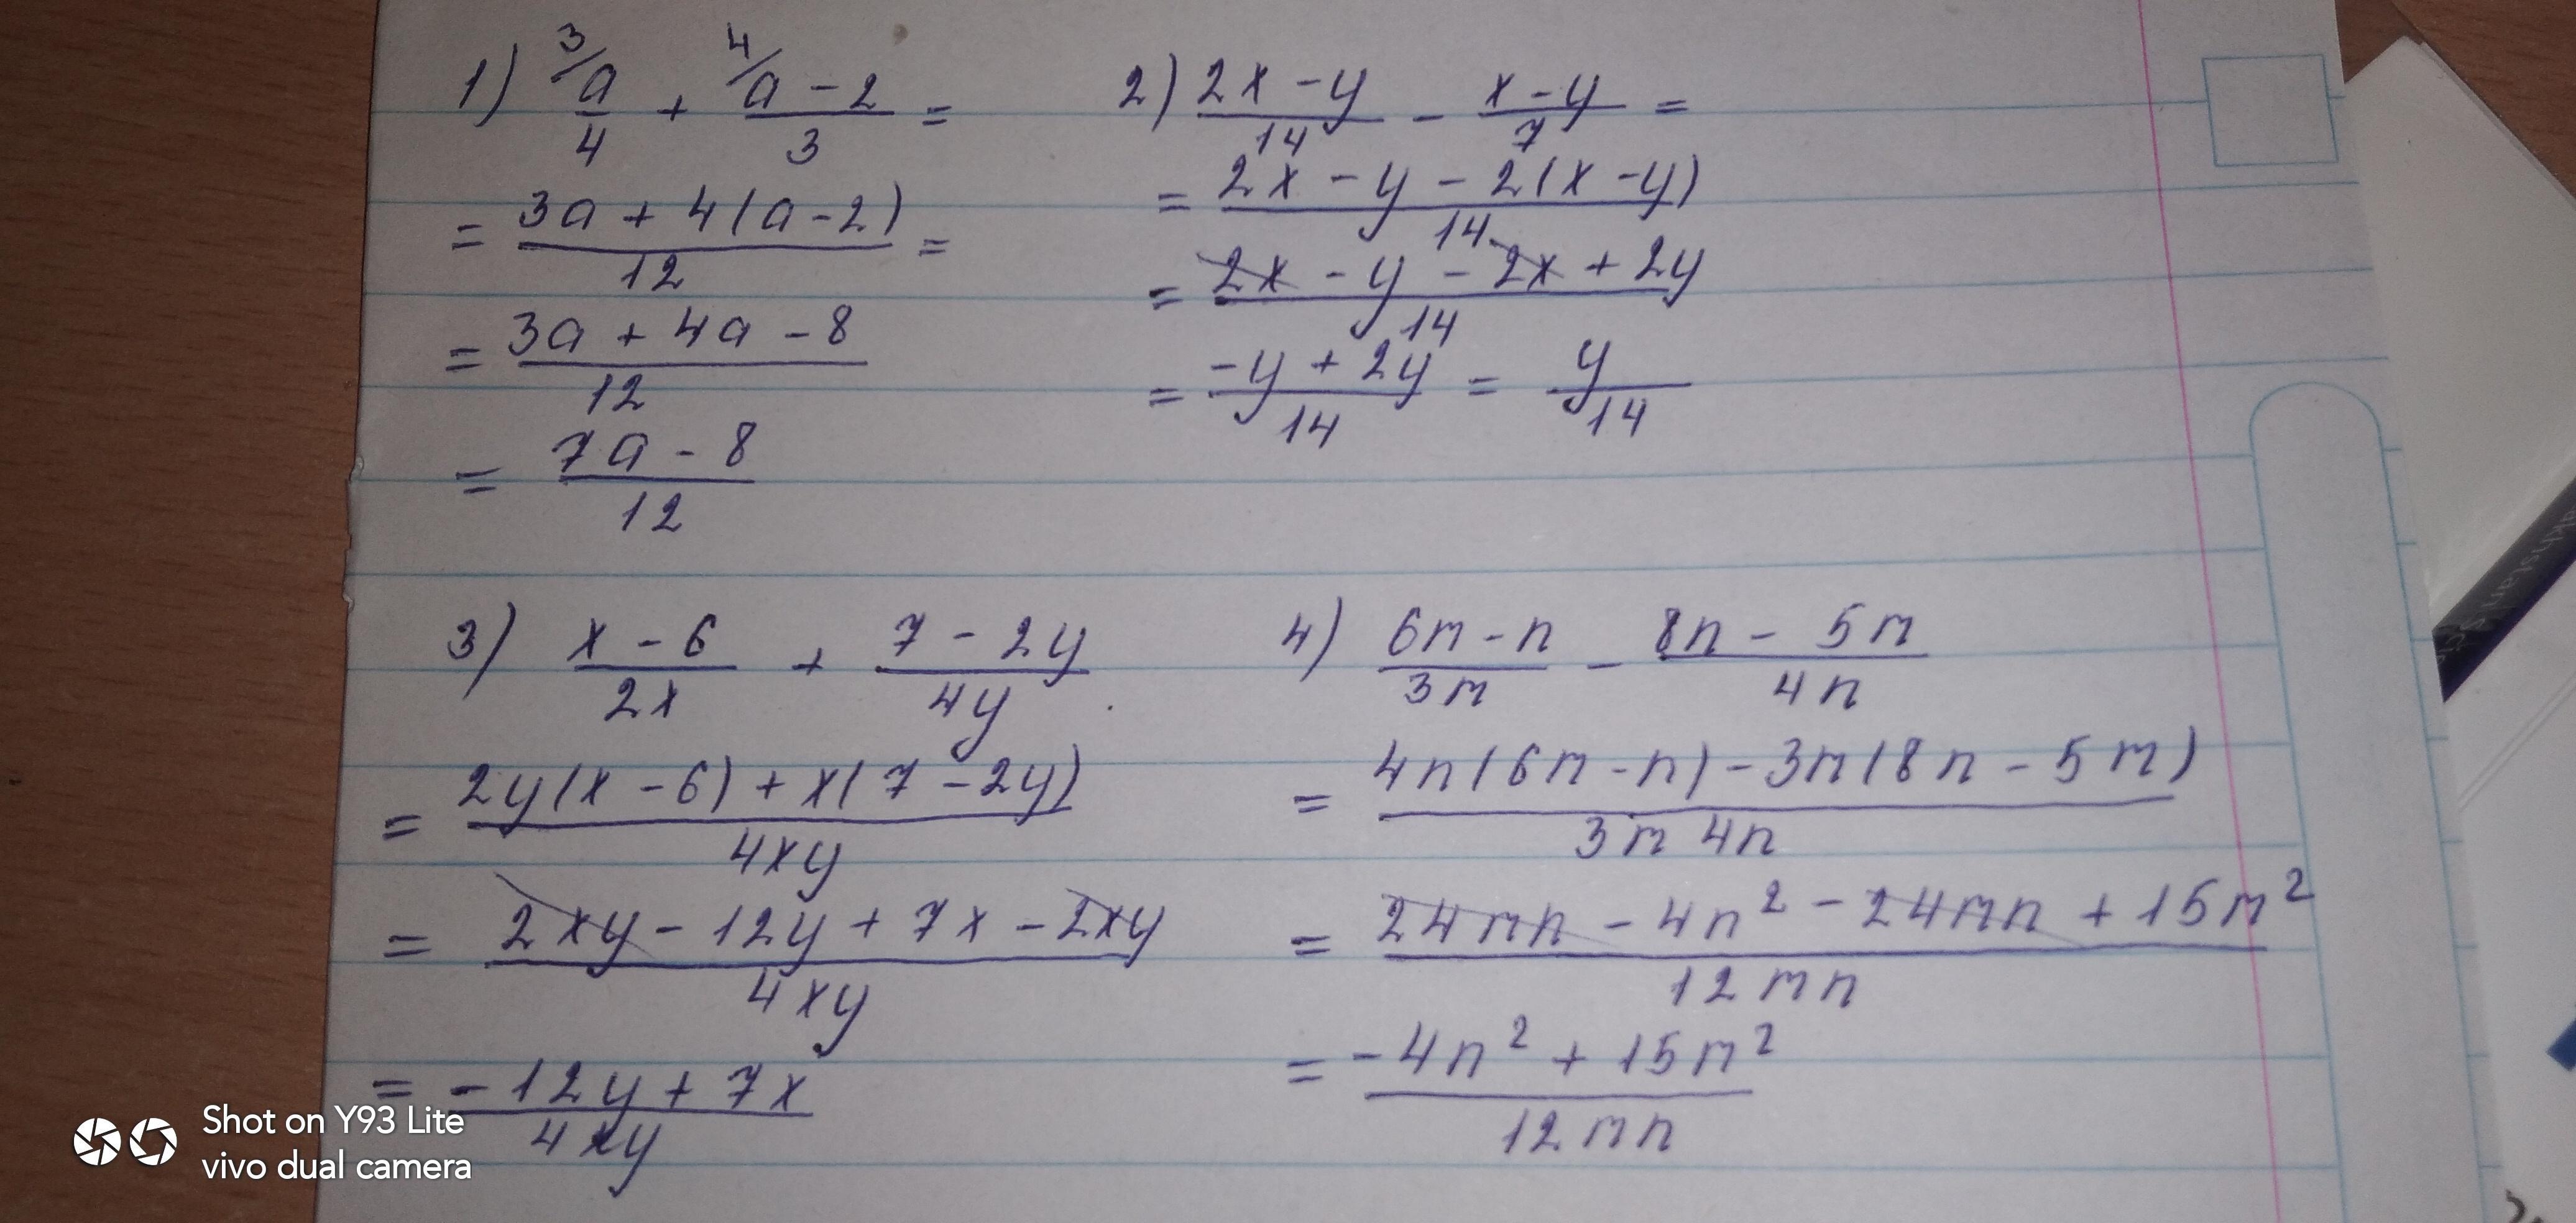 1) ³/a/4 + ⁴/(a - 2)/3 =
= (3a + 4(a - 2))/12 =
= (3a + 4a - 8)/12
= (7a - 8)/12
2) (2x - y)/14 - (x - y)/7 =
= (2x - y - 2(x - y))/14
= (2x - y - 2x + 2y)/14
= (-y + 2y)/14 = y/14
3) (x - 6)/2x + (7 - 2y)/4y
= (2y(x - 6) + x(7 - 2y))/4xy
= (2xy - 12y + 7x - 2xy)/4xy
= (-12y + 7x)/4xy
4) (6m - n)/3m - (8n - 5m)/4n
= (4n(6m - n) - 3m(8n - 5m))/3m 4n
= (24mn - 4n² - 24mn + 15m²)/12mn
= (-4n² + 15m²)/12mn
Shot on Y93 Lite
vivo dual camera